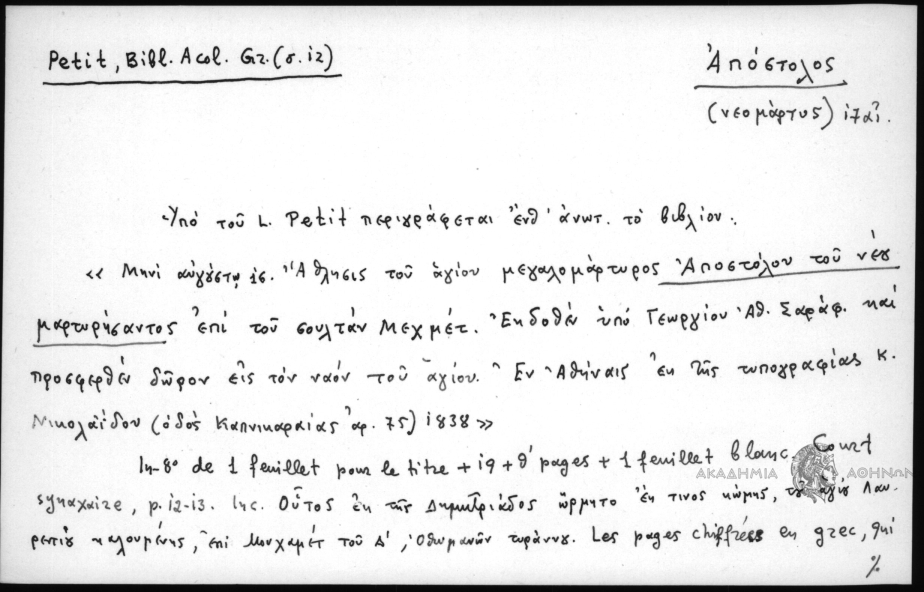 Petit, Bibl. Acol. Gr. (σ. 12)
Ἀπόστολος
(νεομάρτυς)
Ὑπό τοῦ L. Petit περιγράφεται ἔνθ' ἀνωτ. τό βιβλίον:
«Μηνί αὐγούστῳ ις. Ἄθλησις τοῦ ἁγίου μεγαλομάρτυρος Ἀποστόλου τοῦ νέου
μαρτυρήσαντος ἐπί τοῦ σουλτάν Μεχμέτ. Ἐκδοθέν ὑπό Γεωργίου Ἀθ. Σαράφ. καί
προσφερθέν δῶρον εἰς τόν ναόν τοῦ ἁγίου. Ἐν Ἀθήναις ἐκ τῆς τυπογραφίας Κ.
Νικολαΐδου (ὁδός Καπνικαραίας ἀρ. 75) 1838»
In-8° de 1 feuillet pour le titre + 19 + θ' pages + 1 feuillet blanc. Court
synaxaire, p. 12-13. Inc. Οὗτος ἐκ τῆς Δημητριάδος ὥρμητο ἔκ τινος κώμης, τοῦ ἁγίου Λαυ-
ρεντίου καλουμένης, ἐπί Μουχαμέτ τοῦ Δ', Ὀθωμανῶν τυράννου. Les pages chiffrées en grec, qui
%
ΑΚΑΔΗΜΙΑ ΑΘΗΝΩΝ